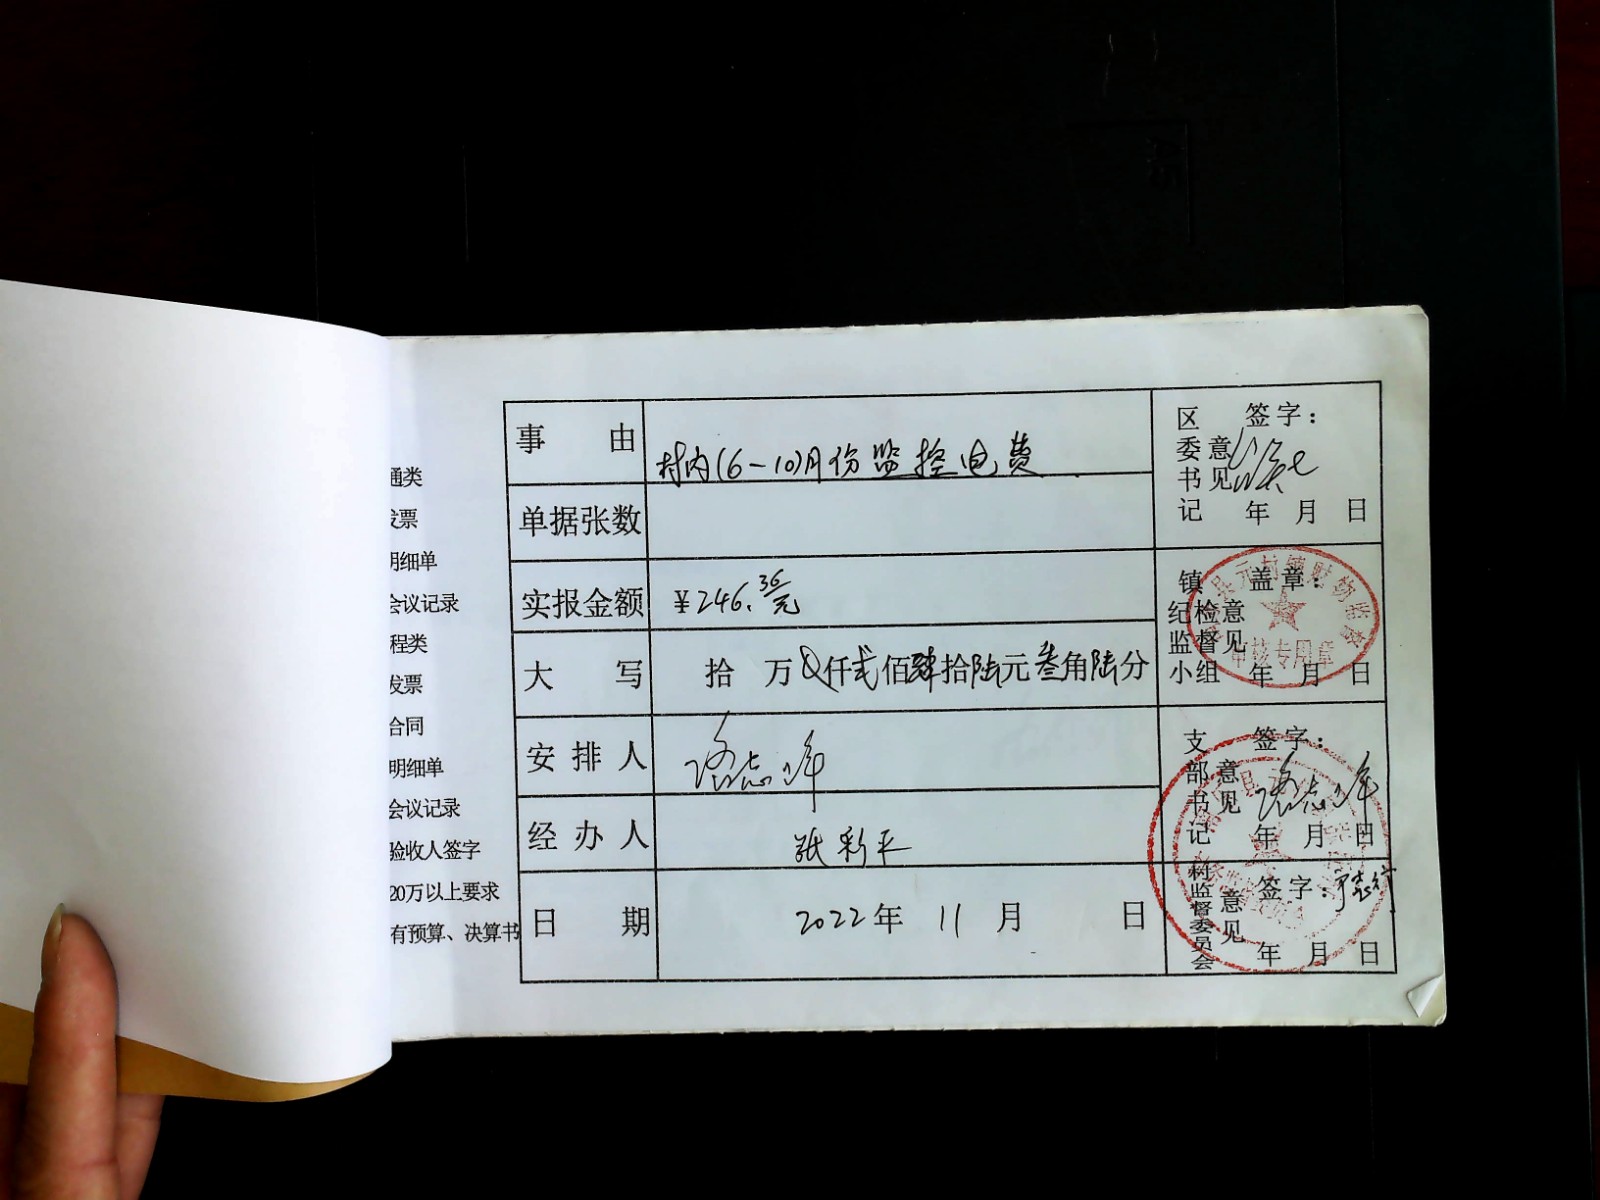 通类
发票
明细单
会议记录
程类
发票
合同
明细单
会议记录
验收人签字
20万以上要求
有预算、决算书
事由 村内(6-10)月份监控电费
单据张数
实报金额 ¥246.36元
大写 拾 万 仟贰佰肆拾陆元叁角陆分
安排人
经办人 张彩平
日期 2022年 11月 日
区委书记意见 签字:
年 月 日
镇纪检监督小组意见 盖章:
元村镇财务监督
审核专用章
年 月 日
支部书记意见 签字:
年 月 日
村监督委员会意见 签字:
年 月 日